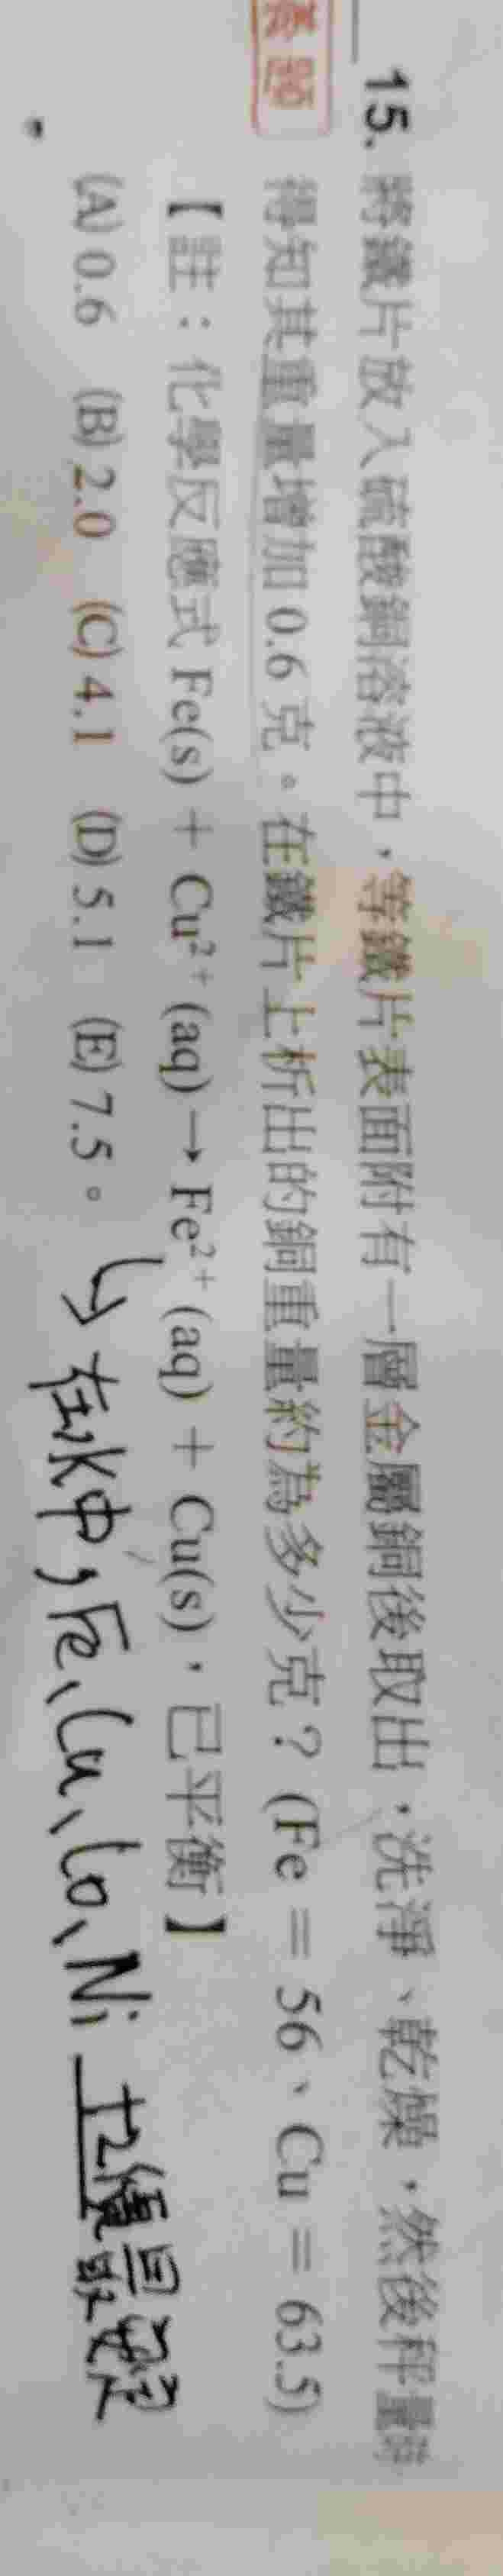 15. 將鐵片放入硫酸銅溶液中，等鐵片表面附有一層金屬銅後取出，洗淨、乾燥，然後秤量
素題
得知其重量增加 0.6 克。在鐵片上析出的銅重量約為多少克？(Fe = 56、Cu = 63.5)
【註：化學反應式 Fe(s) + Cu²⁺(aq) → Fe²⁺(aq) + Cu(s)，已平衡】
(A) 0.6 (B) 2.0 (C) 4.1 (D) 5.1 (E) 7.5。
↳ 在水中，Fe、Cu、Co、Ni 正2價最安定